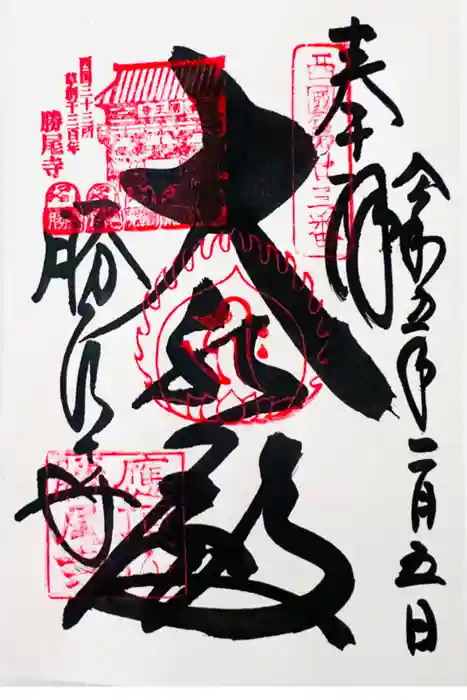 奉拝
令和五年二月五日
西國第廿三番
大悲殿
西国三十三所
草創千三百年
勝尾寺
勝尾寺
應頂山
勝尾寺